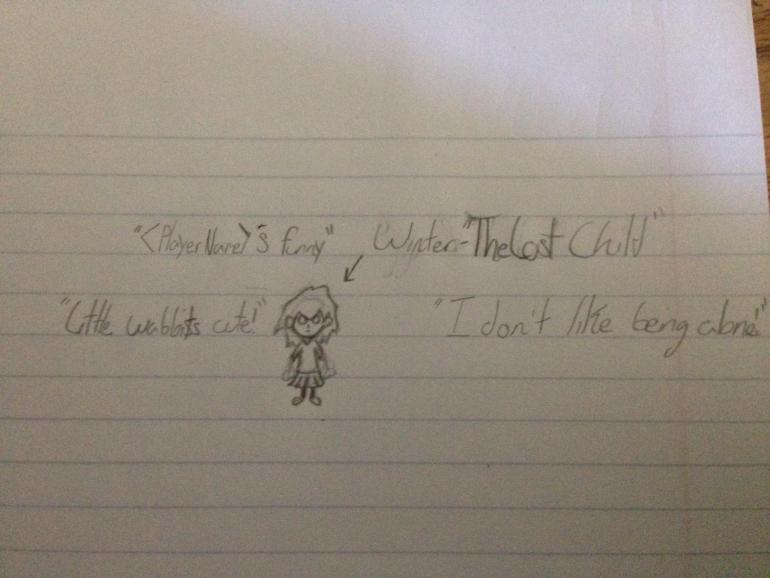 "<PlayerName>'s funny"
Wynter-"The Lost Child"
"Little wabbits cute!"
"I don't like being alone!"